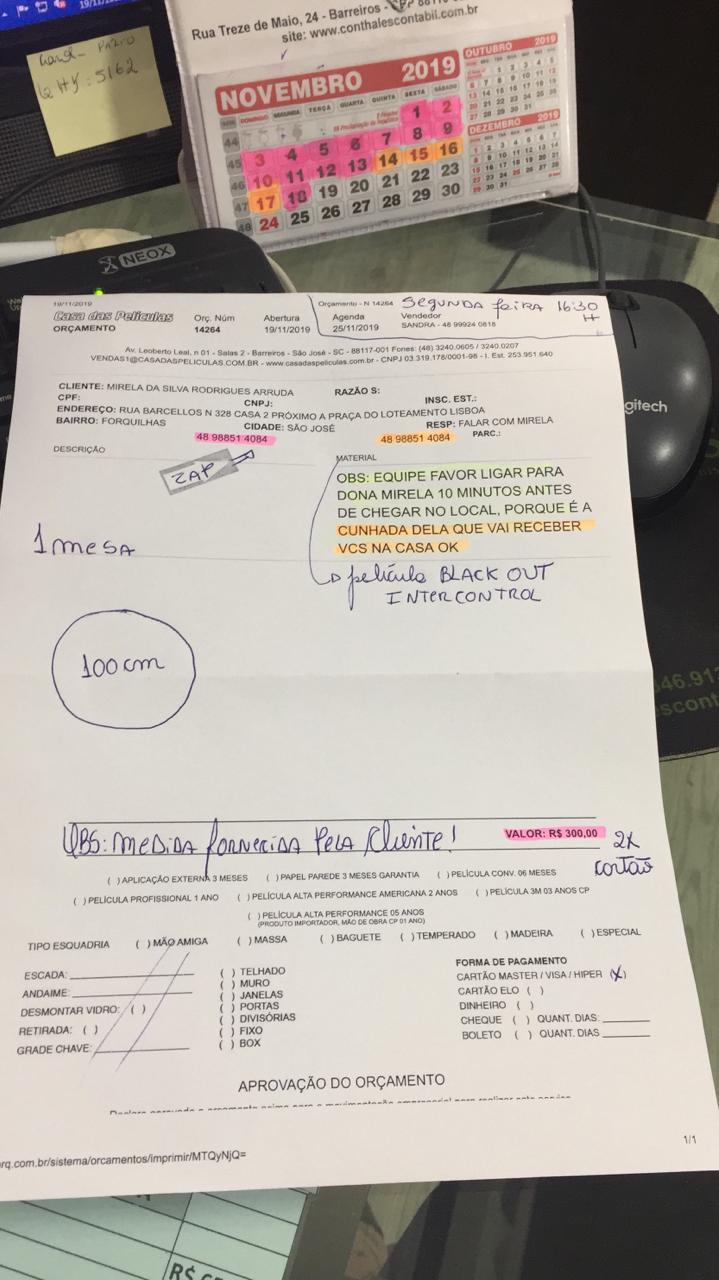 19/11/2019
Rua Treze de Maio, 24 - Barreiros -
site: www.conthalescontabil.com.br
NOVEMBRO 2019
DOMINGO SEGUNDA TERÇA QUARTA QUINTA SEXTA SÁBADO
44 1 2
45 3 4 5 6 7 8 9
46 10 11 12 13 14 15 16
47 17 18 19 20 21 22 23
48 24 25 26 27 28 29 30
OUTUBRO 2019
DEZEMBRO 2019
NEOX
gitech
19/11/2019
Orçamento - N 14264
SEGUNDA feira 16:30 H
Casa das Películas
ORÇAMENTO
Orç. Núm
14264
Abertura
19/11/2019
Agenda
25/11/2019
Vendedor
SANDRA - 48 99924 0818
Av. Leoberto Leal, n 01 - Salas 2 - Barreiros - São José - SC - 88117-001 Fones: (48) 3240.0605 / 3240.0207
VENDAS1@CASADASPELICULAS.COM.BR - www.casadaspeliculas.com.br - CNPJ 03.319.178/0001-98 - I. Est. 253.951.640
CLIENTE: MIRELA DA SILVA RODRIGUES ARRUDA RAZÃO S:
CPF: CNPJ: INSC. EST.:
ENDEREÇO: RUA BARCELLOS N 328 CASA 2 PRÓXIMO A PRAÇA DO LOTEAMENTO LISBOA
BAIRRO: FORQUILHAS CIDADE: SÃO JOSÉ RESP: FALAR COM MIRELA
48 98851 4084 48 98851 4084 PARC.:
DESCRIÇÃO
MATERIAL
ZAP
OBS: EQUIPE FAVOR LIGAR PARA
DONA MIRELA 10 MINUTOS ANTES
DE CHEGAR NO LOCAL, PORQUE É A
CUNHADA DELA QUE VAI RECEBER
VCS NA CASA OK
1 mesa
película BLACK OUT
INTERCONTROL
100cm
OBS: MEDIDA fornecida pela Cliente!
VALOR: R$ 300,00
2x
cartão
( ) APLICAÇÃO EXTERNA 3 MESES ( ) PAPEL PAREDE 3 MESES GARANTIA ( ) PELÍCULA CONV. 06 MESES
( ) PELÍCULA PROFISSIONAL 1 ANO ( ) PELÍCULA ALTA PERFORMANCE AMERICANA 2 ANOS ( ) PELÍCULA 3M 03 ANOS CP
( ) PELÍCULA ALTA PERFORMANCE 05 ANOS
(PRODUTO IMPORTADOR, MÃO DE OBRA CP 01 ANO)
TIPO ESQUADRIA ( ) MÃO AMIGA ( ) MASSA ( ) BAGUETE ( ) TEMPERADO ( ) MADEIRA ( ) ESPECIAL
ESCADA:
ANDAIME:
DESMONTAR VIDRO: ( )
RETIRADA: ( )
GRADE CHAVE:
( ) TELHADO
( ) MURO
( ) JANELAS
( ) PORTAS
( ) DIVISÓRIAS
( ) FIXO
( ) BOX
FORMA DE PAGAMENTO
CARTÃO MASTER / VISA / HIPER (X)
CARTÃO ELO ( )
DINHEIRO ( )
CHEQUE ( ) QUANT. DIAS:
BOLETO ( ) QUANT. DIAS
APROVAÇÃO DO ORÇAMENTO
1/1
rq.com.br/sistema/orcamentos/imprimir/MTQyNjQ=